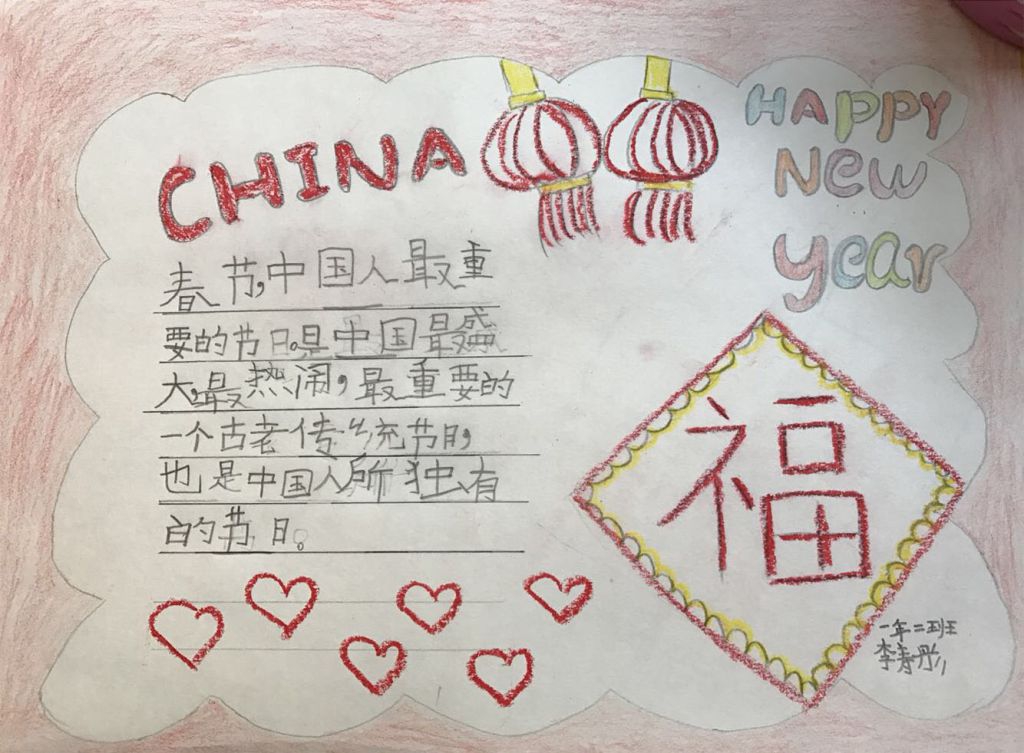 CHINA
HAPPY
New
year
春节,中国人最重
要的节日。是中国最盛
大,最热闹,最重要的
一个古老传统节日,
也是中国人所独有
的节日。
福
一年二班